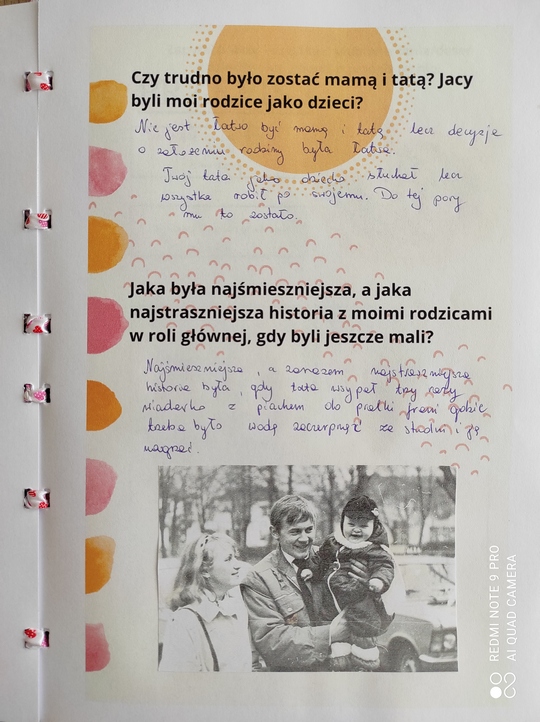 Czy trudno było zostać mamą i tatą? Jacy
byli moi rodzice jako dzieci?
Nie jest łatwo być mamą i tatą lecz decyzja
o założeniu rodziny była łatwa.
Twój tata jako dziecko słuchał lecz
wszystko robił po swojemu. Do tej pory
mu to zostało.
Jaka była najśmieszniejsza, a jaka
najstraszniejsza historia z moimi rodzicami
w roli głównej, gdy byli jeszcze mali?
Najśmieszniejsza, a zarazem najstraszniejsza
historia była, gdy tata wsypał trzy razy
wiaderko z piachem do pralki frani gdzie
trzeba było wodę zaczerpnąć ze studni i ją
nagrzać.
REDMI NOTE 9 PRO
AI QUAD CAMERA